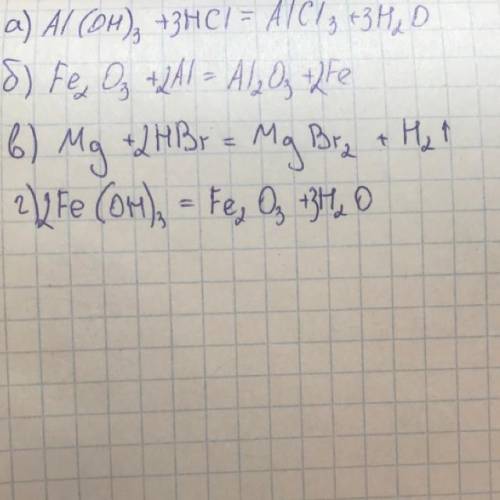 а) Al(OH)₃ +3HCl = AlCl₃ +3H₂O
б) Fe₂O₃ +2Al = Al₂O₃ +2Fe
в) Mg +2HBr = MgBr₂ + H₂↑
г) 2Fe(OH)₃ = Fe₂O₃ +3H₂O